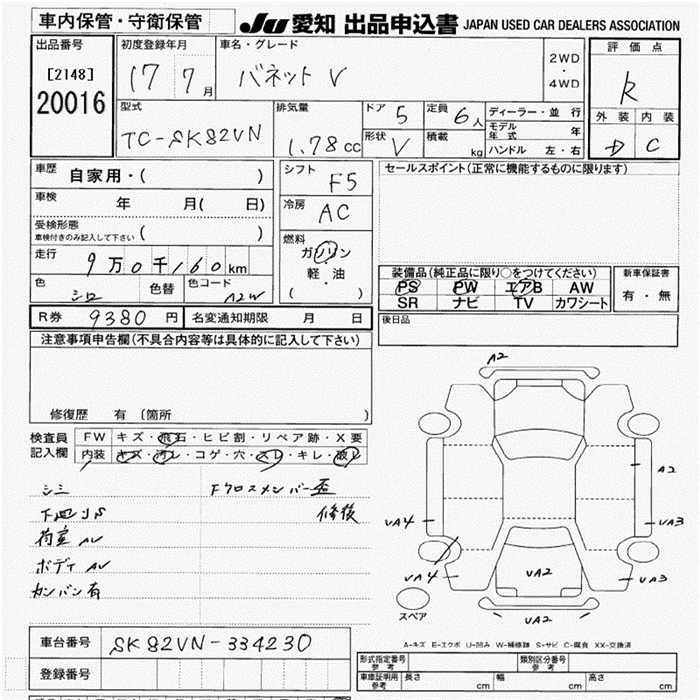 車内保管・守衛保管
JU 愛知 出品申込書 JAPAN USED CAR DEALERS ASSOCIATION
出品番号 初度登録年月 車名・グレード 評価点
[2148] 17 7月 バネット V 2WD・4WD R
20016
型式 排気量 ドア 5 定員 6人 ディーラー・並行 外装 内装
TC-SK82VN 1.78cc 形状 V 積載 kg モデル年式 年 D C
ハンドル 左・右
車歴 自家用・( ) シフト F5 セールスポイント(正常に機能するものに限ります)
車検 年 月( 日) 冷房 AC
受検形態 車検付きのみ記入して下さい ( )
走行 9万0千160km 燃料 ガソリン 軽・油 ( )
装備品(純正品に限り○をつけてください) 新車保証書
PS PW エアB AW 有・無
SR ナビ TV カワシート
色 シロ 色替 色コード A2W
R券 9380円 名変通知期限 月 日 後日品
注意事項申告欄(不具合内容等は具体的に記入して下さい)
修復歴 有 (箇所 )
検査員記入欄 FW キズ・飛石・ヒビ割・リペア跡・X要
内装 キズ・汚レ・コゲ・穴・スレ・キレ・破レ
シミ Fクロスメンバー歪
下廻りS 修後
荷室AV
ボディAV
カンバン有
A2
A2
UA4 UA3
UA4 UA2 UA3
UA2
スペア
A-キズ E-エクボ U-凹み W-補修跡 S-サビ C-腐食 XX-交換済
車台番号 SK82VN-334230
登録番号
形式指定番号 参考 類別区分番号 参考
車庫証明用 参考 長さ cm 幅 cm 高さ cm